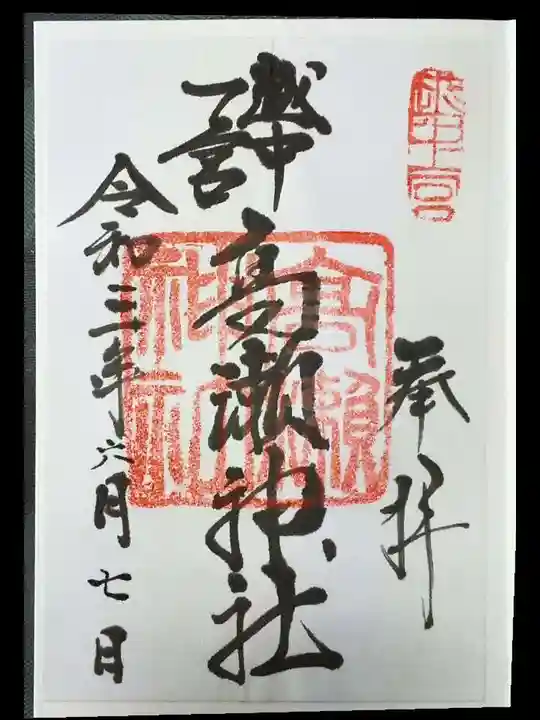 越中一宮
奉拝
越中
一宮
高瀬神社
高瀬神社
令和三年六月七日